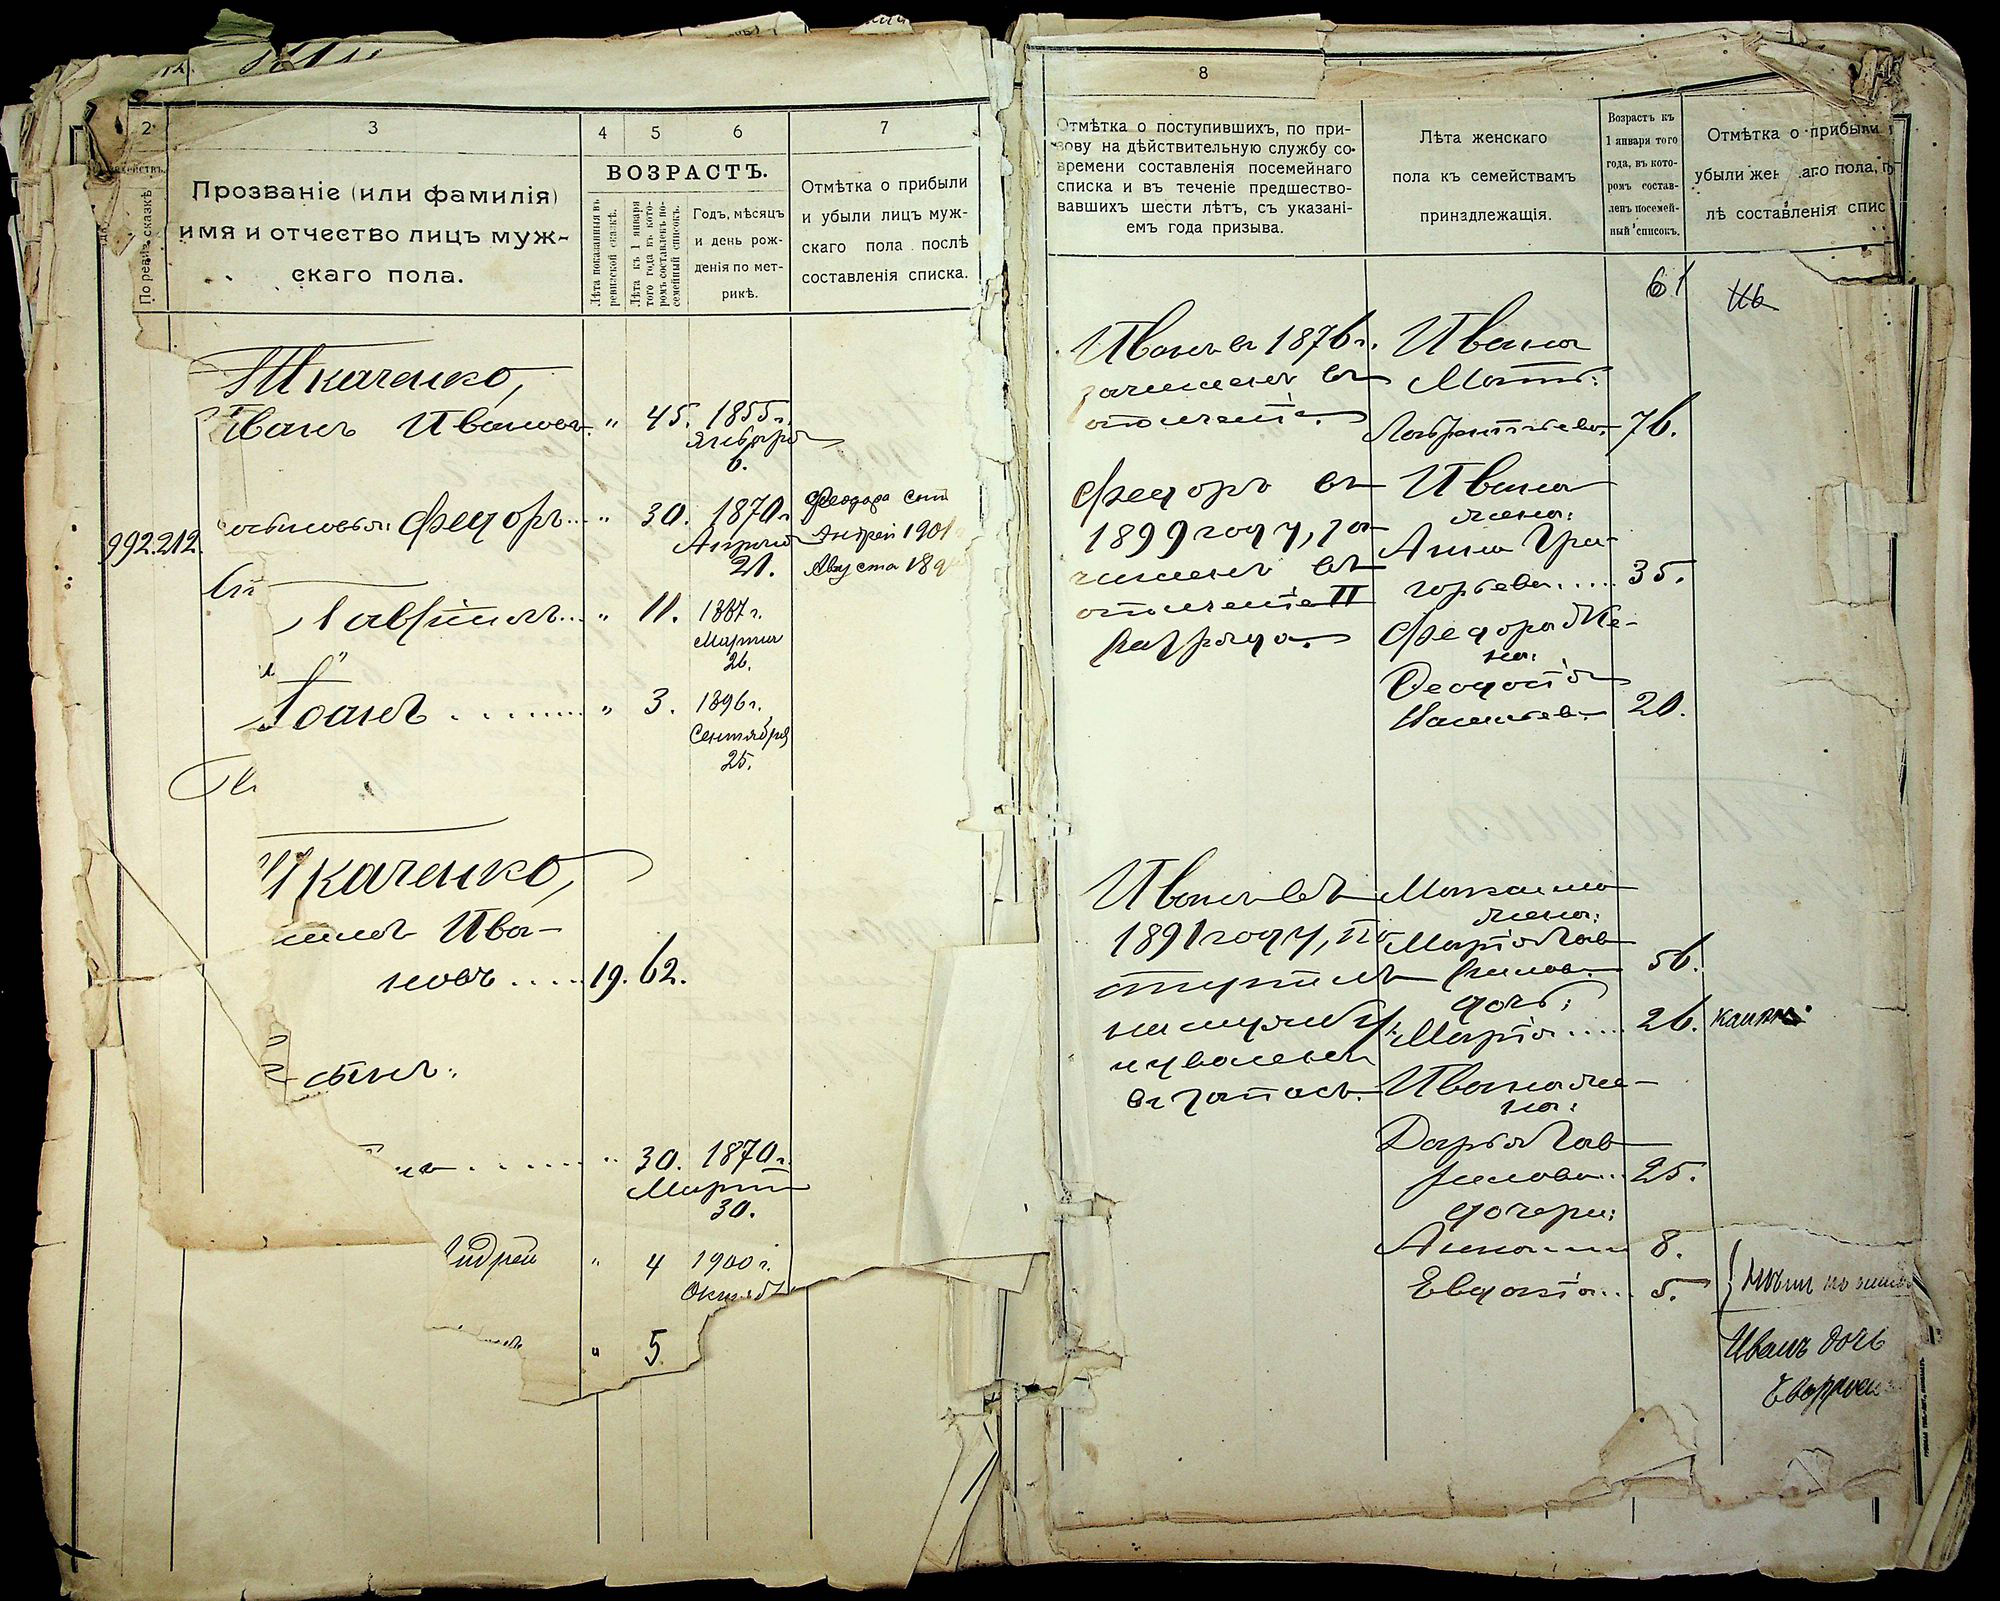 2
3
4
5
6
7
По ревиз. сказкѣ
Прозваніе (или фамилія)
имя и отчество лицъ муж-
скаго пола.
ВОЗРАСТЪ.
Лѣта показанныя въ
ревизской сказкѣ.
Лѣта къ 1 января
того года въ кото-
ромъ составленъ по-
семейный списокъ.
Годъ, мѣсяцъ
и день рож-
денія по мет-
рикѣ.
Отмѣтка о прибыли
и убыли лицъ муж-
скаго пола послѣ
составленія списка.
Ткаченко,
Иванъ Ивановъ " 45. 1855 г.
Января
6.
992.212.
сыновья: Федоръ " 30. 1870 г.
Апрѣля
21.
Феодора сын
Андрей 1901
Августа 189
Гавріилъ " 11. 1887 г.
Марта
26.
Іоанъ " 3. 1896 г.
Сентября
25.
Ткаченко,
Ива-
новъ 19. 62.
сынъ:
" 30. 1870 г.
Марта
30.
Андрей " 4 1900 г.
Октяб
" 5
8
Отмѣтка о поступившихъ, по при-
зову на дѣйствительную службу со-
времени составленія посемейнаго
списка и въ теченіе предшество-
вавшихъ шести лѣтъ, съ указані-
емъ года призыва.
Лѣта женскаго
пола къ семействамъ
принадлежащія.
Возрастъ къ
1 января того
года, въ кото-
ромъ состав-
ленъ посемей-
ный списокъ.
Отмѣтка о прибыли
убыли жен аго пола, п
лѣ составленія спис
61
Иванъ въ 1876 г.
зачисленъ въ
ополченіе.
Федоръ въ
1899 году, за-
численъ въ
ополченіе II
разряда.
Ивана
Мать:
Лаврентьева 76.
Ивана
жена:
Анна Гри-
горьева 35.
Федора Же-
на:
Феодосія
20.
Иванъ въ
1891 году, по
ступилъ
на службу,
и уволенъ
въ запасъ.
жена:
Марія Гав
рилов. 56.
дочь:
Марія 26.
Ивана же-
на:
Дарья Гав
рилова 25.
дочери:
Анна 8.
Евдокія 5.
Иванъ дочь